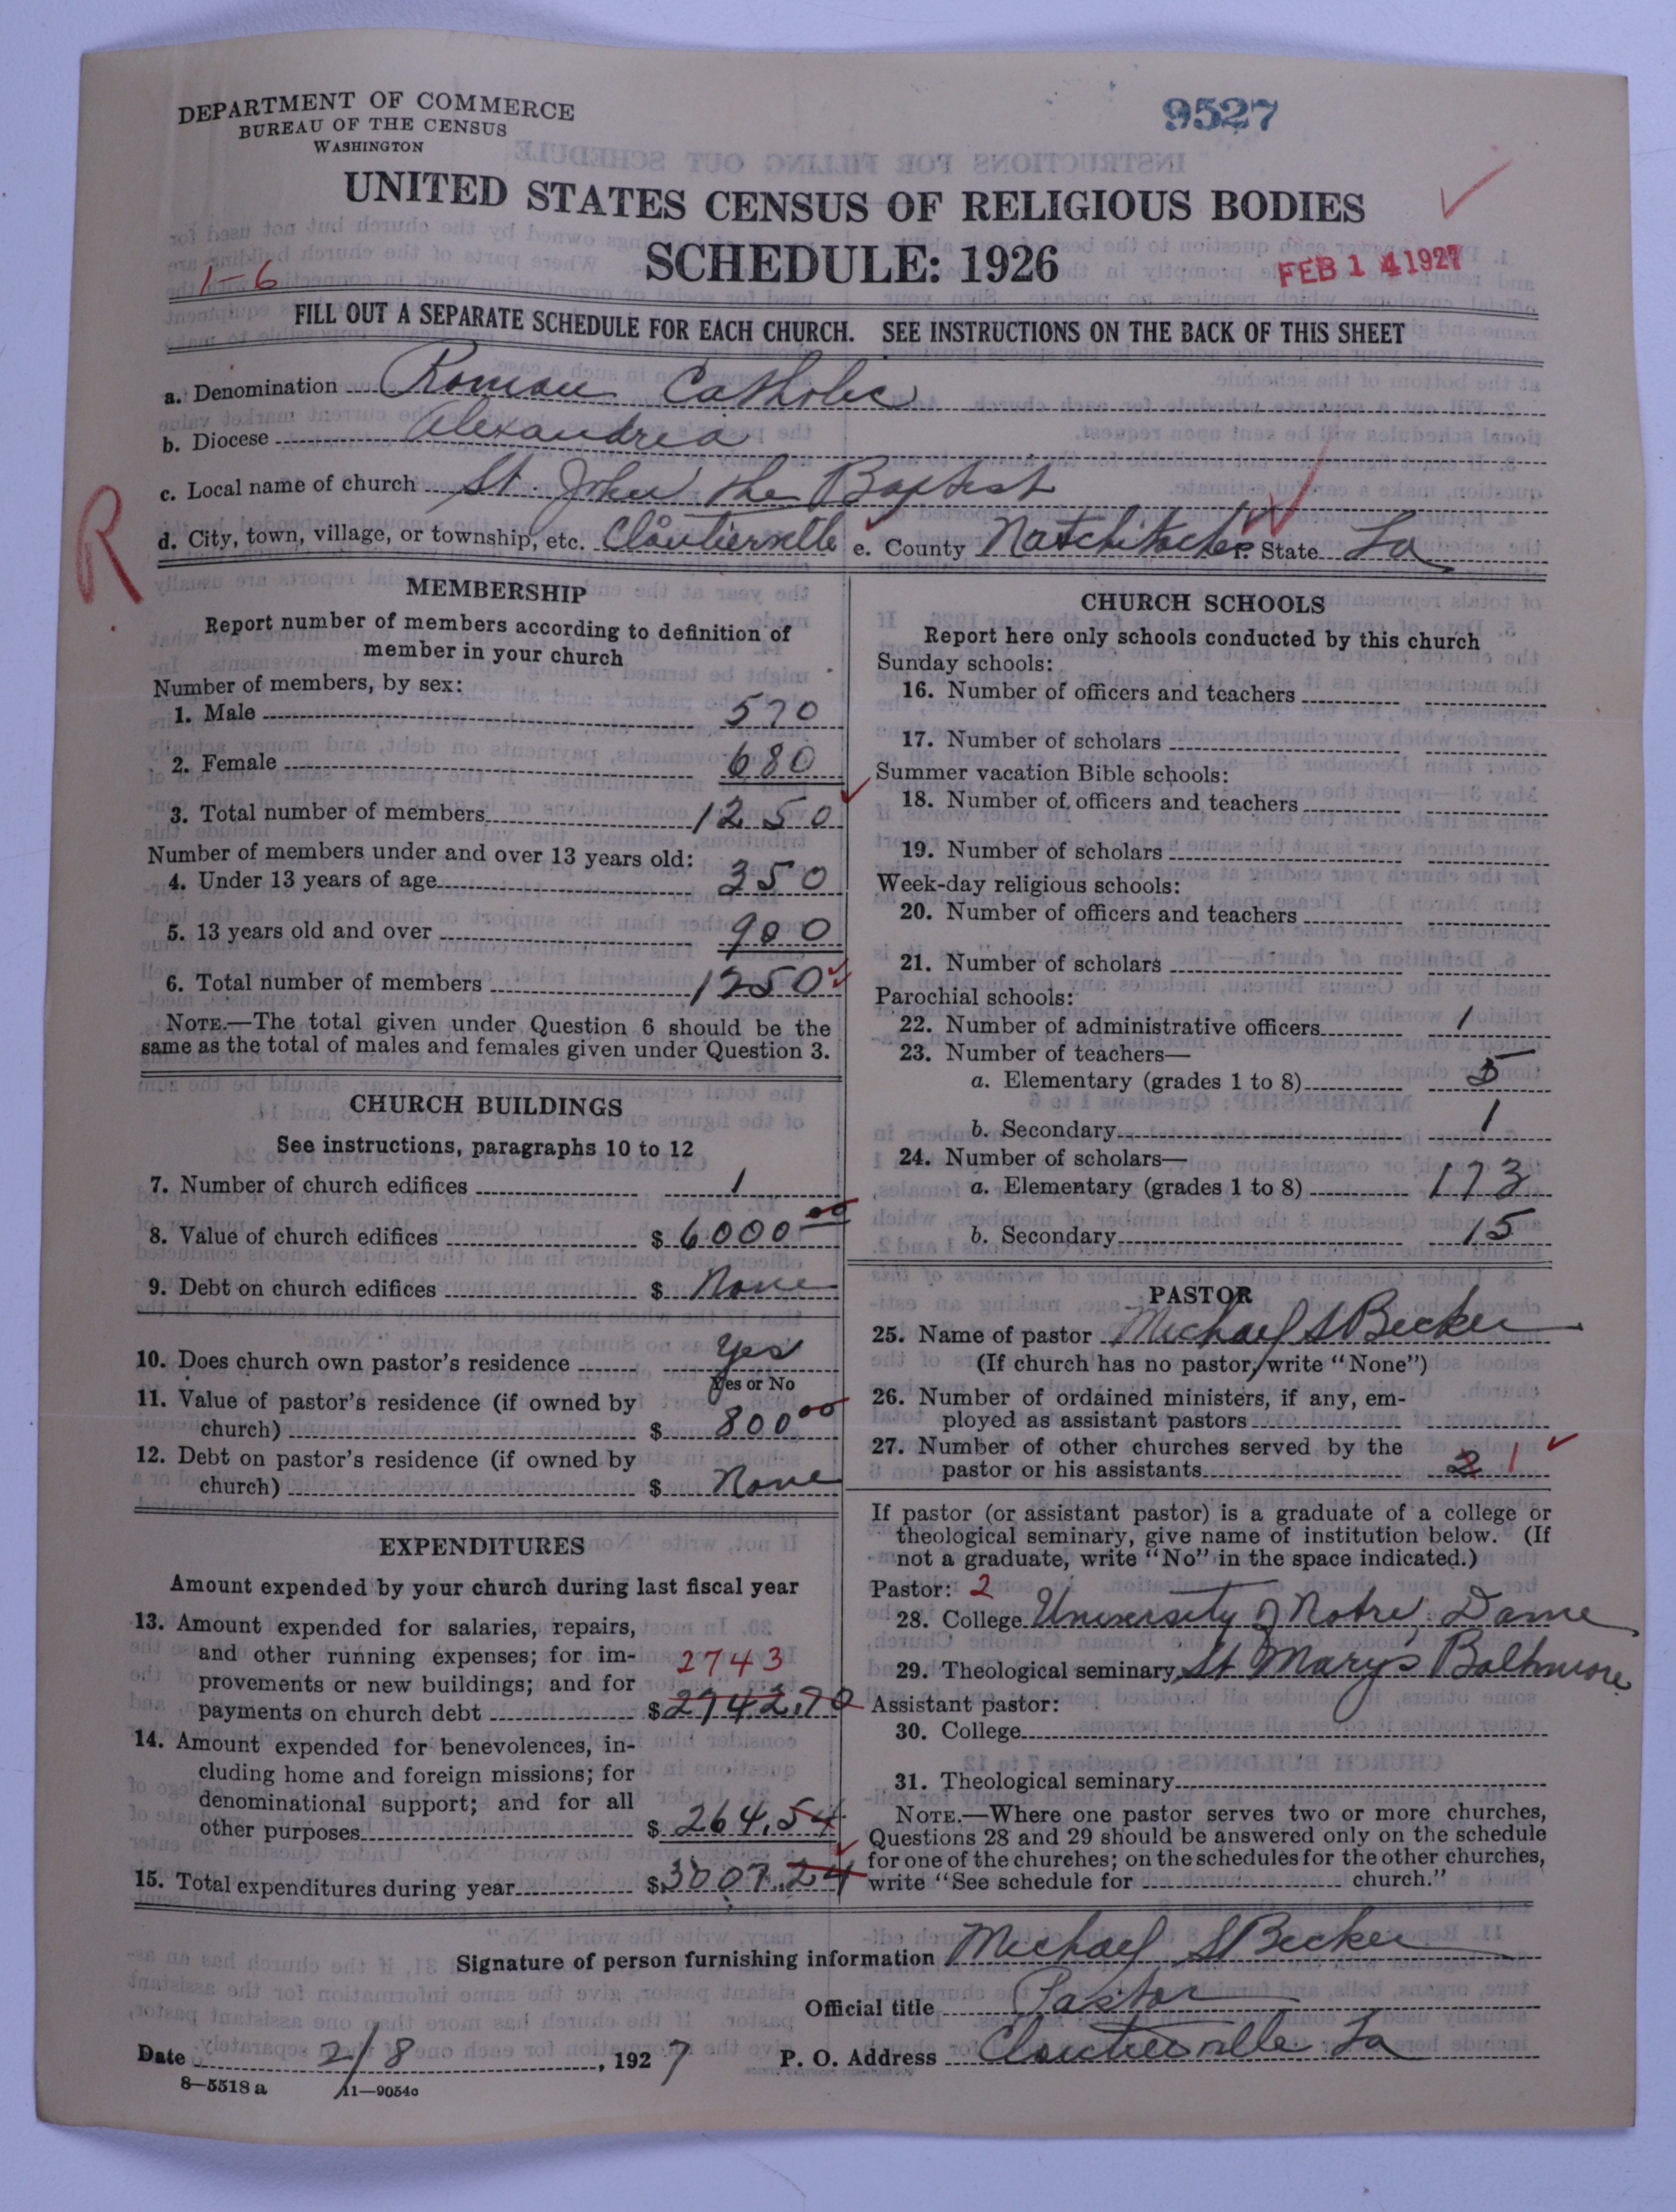 DEPARTMENT OF COMMERCE
BUREAU OF THE CENSUS
WASHINGTON
9527
UNITED STATES CENSUS OF RELIGIOUS BODIES
SCHEDULE: 1926
FEB 14 1927
1-6
FILL OUT A SEPARATE SCHEDULE FOR EACH CHURCH. SEE INSTRUCTIONS ON THE BACK OF THIS SHEET
a. Denomination Roman Catholic
b. Diocese Alexandria
c. Local name of church St. John the Baptist
R
d. City, town, village, or township, etc. Cloutierville e. County Natchitoches f. State La
MEMBERSHIP
Report number of members according to definition of
member in your church
Number of members, by sex:
1. Male 570
2. Female 680
3. Total number of members 1250
Number of members under and over 13 years old:
4. Under 13 years of age 350
5. 13 years old and over 900
6. Total number of members 1250
NOTE.—The total given under Question 6 should be the
same as the total of males and females given under Question 3.
CHURCH BUILDINGS
See instructions, paragraphs 10 to 12
7. Number of church edifices 1
8. Value of church edifices $ 6000 00
9. Debt on church edifices $ None
10. Does church own pastor's residence Yes
Yes or No
11. Value of pastor's residence (if owned by
church) $ 800 00
12. Debt on pastor's residence (if owned by
church) $ None
EXPENDITURES
Amount expended by your church during last fiscal year
13. Amount expended for salaries, repairs,
and other running expenses; for im-
provements or new buildings; and for 2743
payments on church debt $ 2742.70
14. Amount expended for benevolences, in-
cluding home and foreign missions; for
denominational support; and for all
other purposes $ 264.54
15. Total expenditures during year $ 3007.24
CHURCH SCHOOLS
Report here only schools conducted by this church
Sunday schools:
16. Number of officers and teachers
17. Number of scholars
Summer vacation Bible schools:
18. Number of officers and teachers
19. Number of scholars
Week-day religious schools:
20. Number of officers and teachers
21. Number of scholars
Parochial schools:
22. Number of administrative officers 1
23. Number of teachers—
a. Elementary (grades 1 to 8) 5
b. Secondary 1
24. Number of scholars—
a. Elementary (grades 1 to 8) 173
b. Secondary 15
PASTOR
25. Name of pastor Michael S Becker
(If church has no pastor, write "None")
26. Number of ordained ministers, if any, em-
ployed as assistant pastors
27. Number of other churches served by the
pastor or his assistants 2 1
If pastor (or assistant pastor) is a graduate of a college or
theological seminary, give name of institution below. (If
not a graduate, write "No" in the space indicated.)
Pastor: 2
28. College University of Notre Dame
29. Theological seminary St Mary's Baltimore
Assistant pastor:
30. College
31. Theological seminary
NOTE.—Where one pastor serves two or more churches,
Questions 28 and 29 should be answered only on the schedule
for one of the churches; on the schedules for the other churches,
write "See schedule for church."
Signature of person furnishing information Michael S Becker
Official title Pastor
Date 2/8, 1927 P. O. Address Cloutierville La
8-5518 a 11-9054c